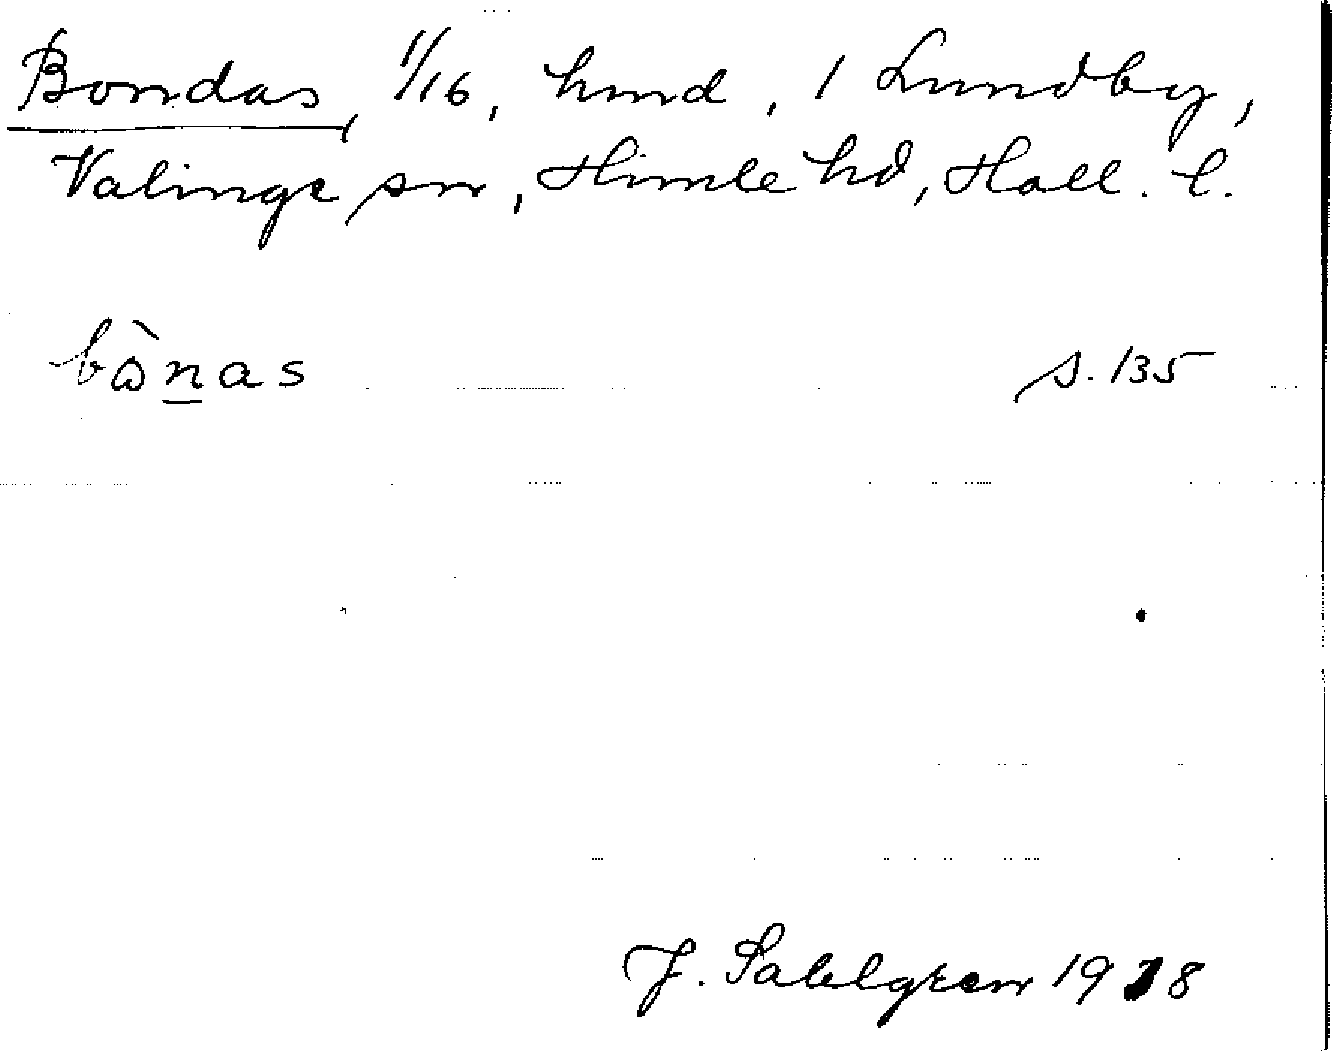 Bondas, 1/16, hmd, 1 Lundby,
Valinge sn, Himle hd, Hall. l.
bònas s. 135
J. Sahlgren 1918